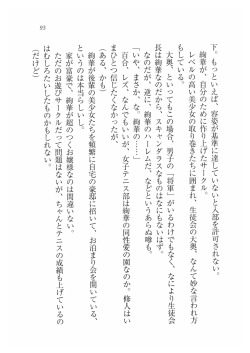 93
下。もっといえば、容姿が基準に達していないと入部を許可されない。
絢華が、自分のために作り上げたサークル。
レベルの高い美少女の取り巻きたちに囲まれ、生徒会の大奥、なんて妙な言われ方
もしている。
大奥、といってもこの場合、男子の「将軍」がいるわけでもなく、なにより生徒会
長は絢華なのだから、スキャンダラスなものはなにもないはず。
なのだが、逆に、絢華のハーレムだ、などというあらぬ噂も。
「いや、まさか、な、絢華の……」
百合、レズ、なんでもいいが、女子テニス部は絢華の同性愛の園なのか。修人はい
まひとつ信じたくなかったが、
(ある、かも)
というのは本当らしい。
絢華が後輩の美少女たちを頻繁に自宅の豪邸に招いて、お泊まり会を開いている、
家が富豪で、絢華が超つくお嬢様なのは間違いない。
ただのお遊びサークルだって問題はないが、ちゃんとテニスの成績も上げているの
はむしろたいしたものかもしれない。
(だけど)